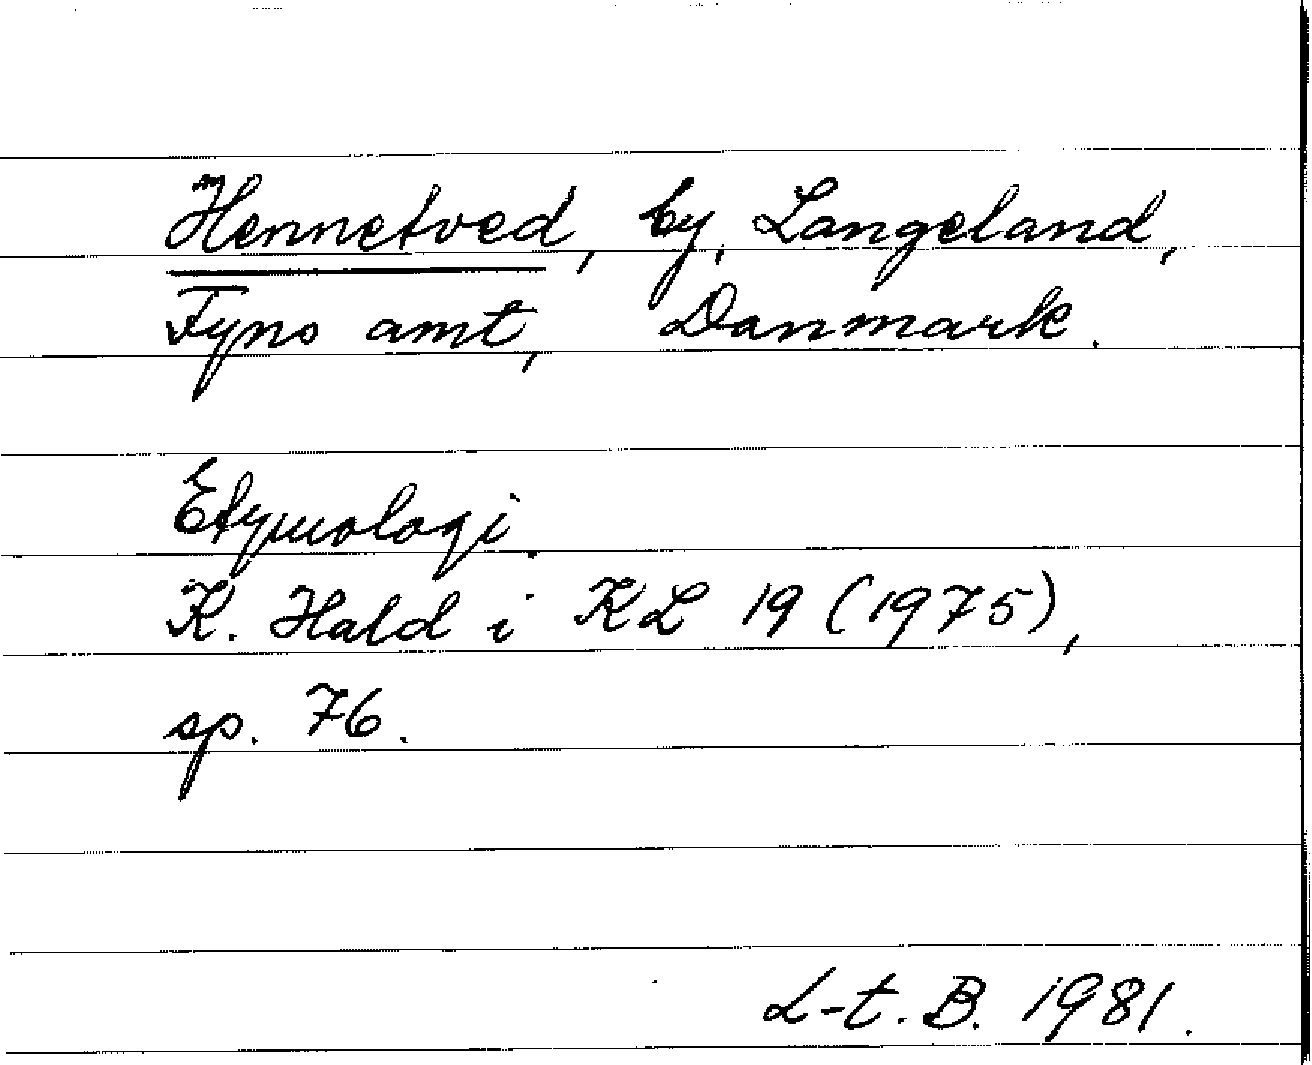 Hennetved, by, Langeland,
Fyns amt, Danmark.
Etymologi.
K. Hald i KL 19 (1975),
sp. 76.
L-t. B. 1981.